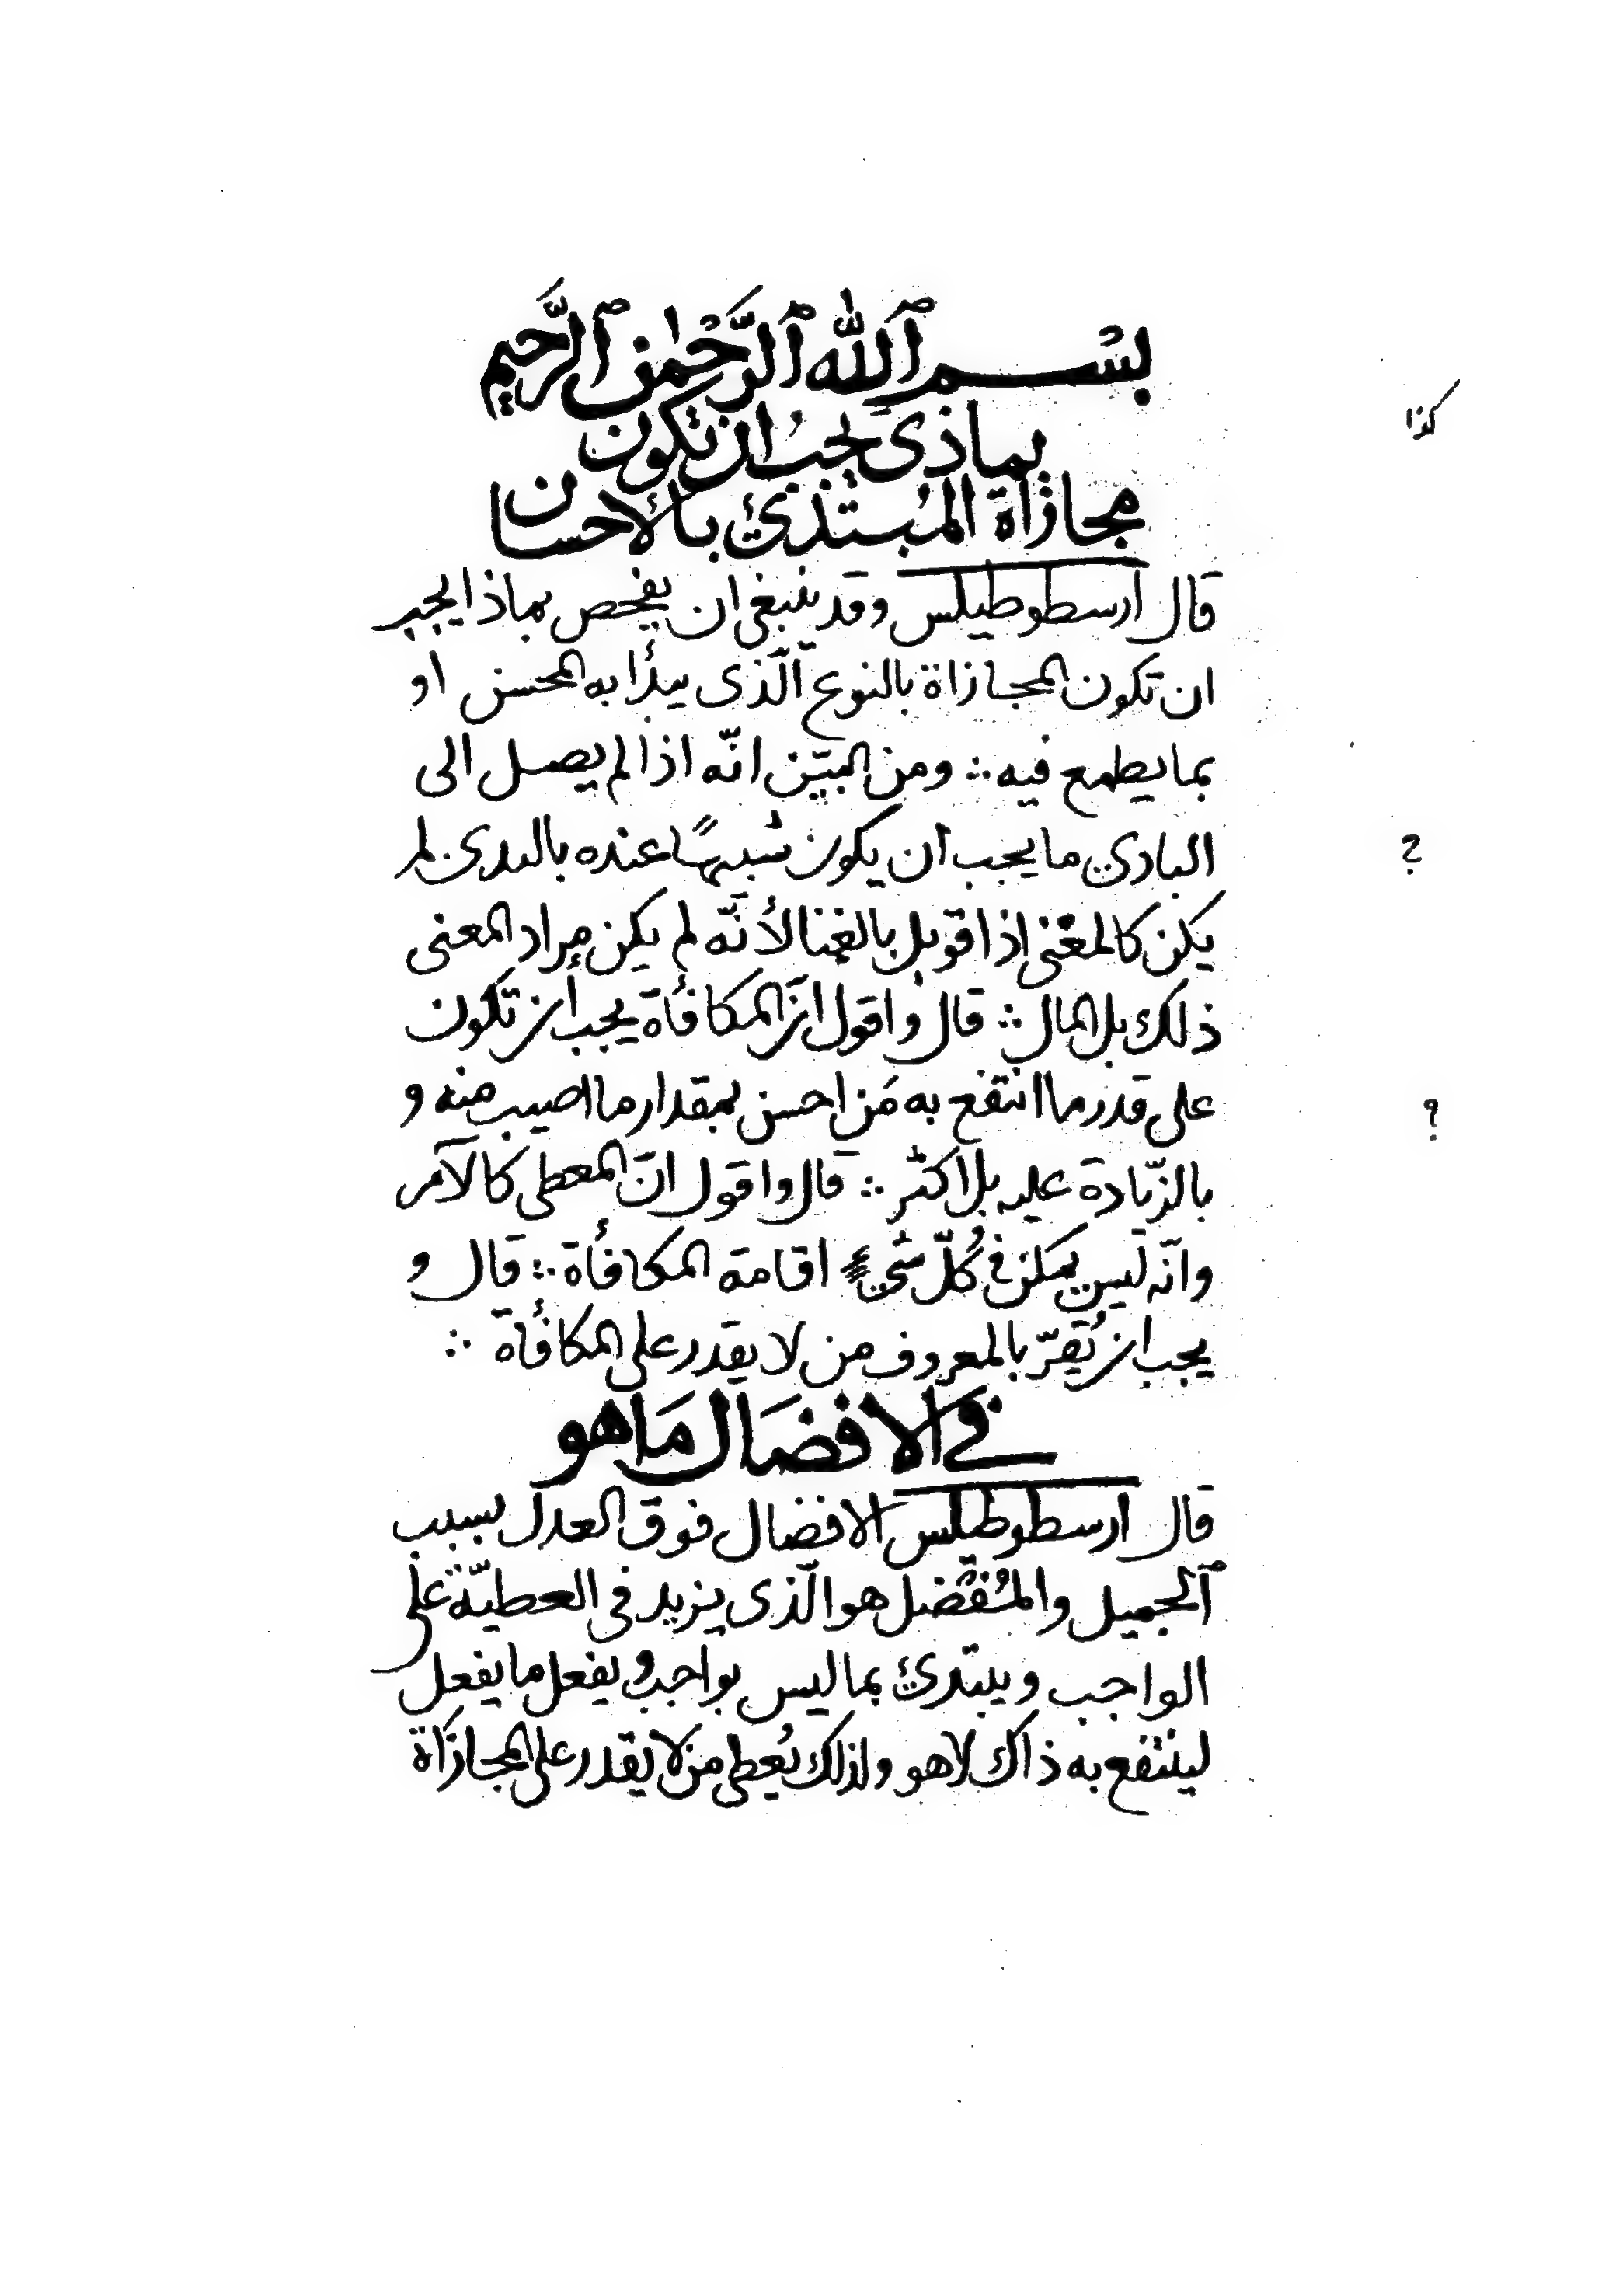 بِسْمِ ٱللّٰهِ ٱلرَّحْمٰنِ ٱلرَّحِيمِ
بماذى يجب ان تكون
كذا
مجازاة المُبتدئ بالإحسان
قال ارسطوطيلس وقد ينبغى ان يفحص بماذا يجب
ان تكون المجازاة بالنوع الّذى يبدأ به المحسن او
بما يطمع فيه ∴ ومن البيّن انّه اذا لم يصل الى
البادئ ما يجب ان يكون شبيهًا عنده بالبدى لم
؟
يكن كالمغنى اذا قوبل بالغنا لأنّه لم يكن مراد المعنى
ذلك بل المال ∴ قال واقول انّ المكافأة يجب ان تكون
على قدر ما انتفع به مَن احسن بمقدار ما اصيب منه و
؟
بالزّيادة عليه بل اكثر ∴ قال واقول انّ المعطى كالآمر
وانّه ليس يمكن فى كُلّ شىءٍ اقامة المكافأة ∴ قال و
يجب ان يُقرّ بالمعروف من لا يقدر على المكافأة ∴
فى الافضال ما هو
قال ارسطوطيلس الافضال فوق العدل بسبب
ٱلجميل والمُفضل هو الّذى يزيد فى العطيّة على
الواجب ويبتدئ بما ليس بواجب ويفعل ما يفعل
لينتفع به ذاك لا هو ولذلك يُعطى من لا يقدر على المجازاة